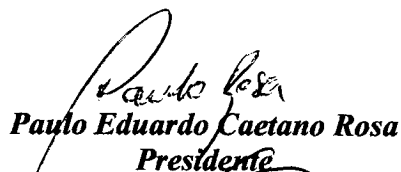 Paulo Rosa
Paulo Eduardo Caetano Rosa
Presidente